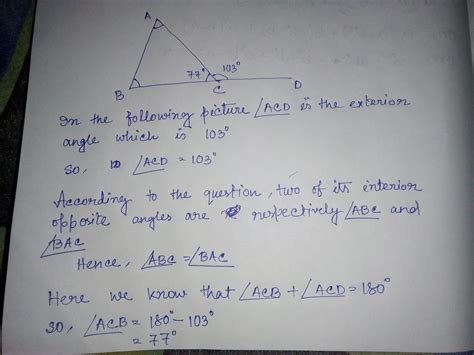 A
77° 103°
B C D
In the following picture ∠ACD is the exterior
angle which is 103°
So, ∠ACD = 103°
According to the question, two of its interior
opposite angles are respectively ∠ABC and
∠BAC
Hence, ∠ABC = ∠BAC
Here we know that ∠ACB + ∠ACD = 180°
So, ∠ACB = 180° - 103°
= 77°